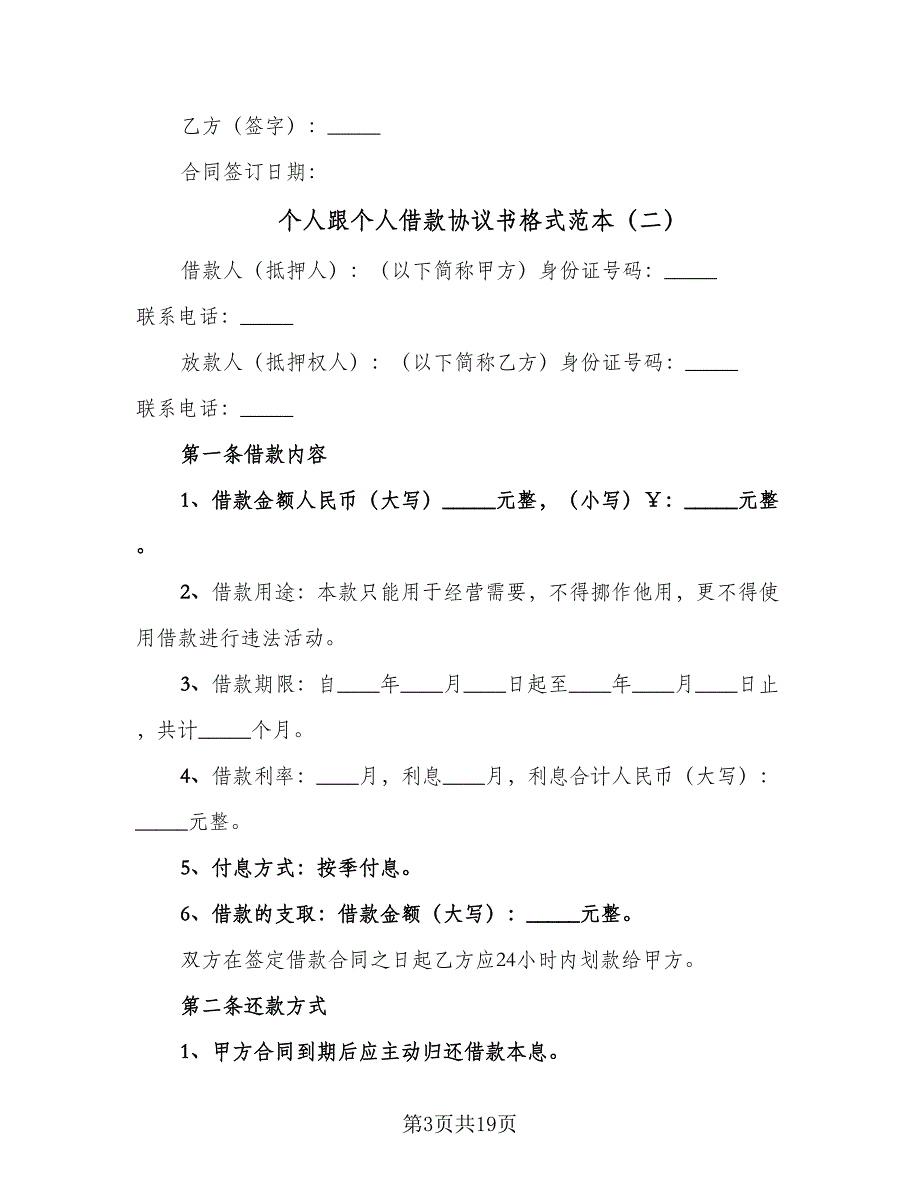 乙方（签字）：_____
合同签订日期：
个人跟个人借款协议书格式范本（二）
借款人（抵押人）：（以下简称甲方）身份证号码：_____
联系电话：_____
放款人（抵押权人）：（以下简称乙方）身份证号码：_____
联系电话：_____
第一条借款内容
1、借款金额人民币（大写）_____元整，（小写）￥：_____元整
。
2、借款用途：本款只能用于经营需要，不得挪作他用，更不得使
用借款进行违法活动。
3、借款期限：自____年____月____日起至____年____月____日止
，共计_____个月。
4、借款利率：____月，利息____月，利息合计人民币（大写）：
_____元整。
5、付息方式：按季付息。
6、借款的支取：借款金额（大写）：_____元整。
双方在签定借款合同之日起乙方应24小时内划款给甲方。
第二条还款方式
1、甲方合同到期后应主动归还借款本息。
第3页共19页